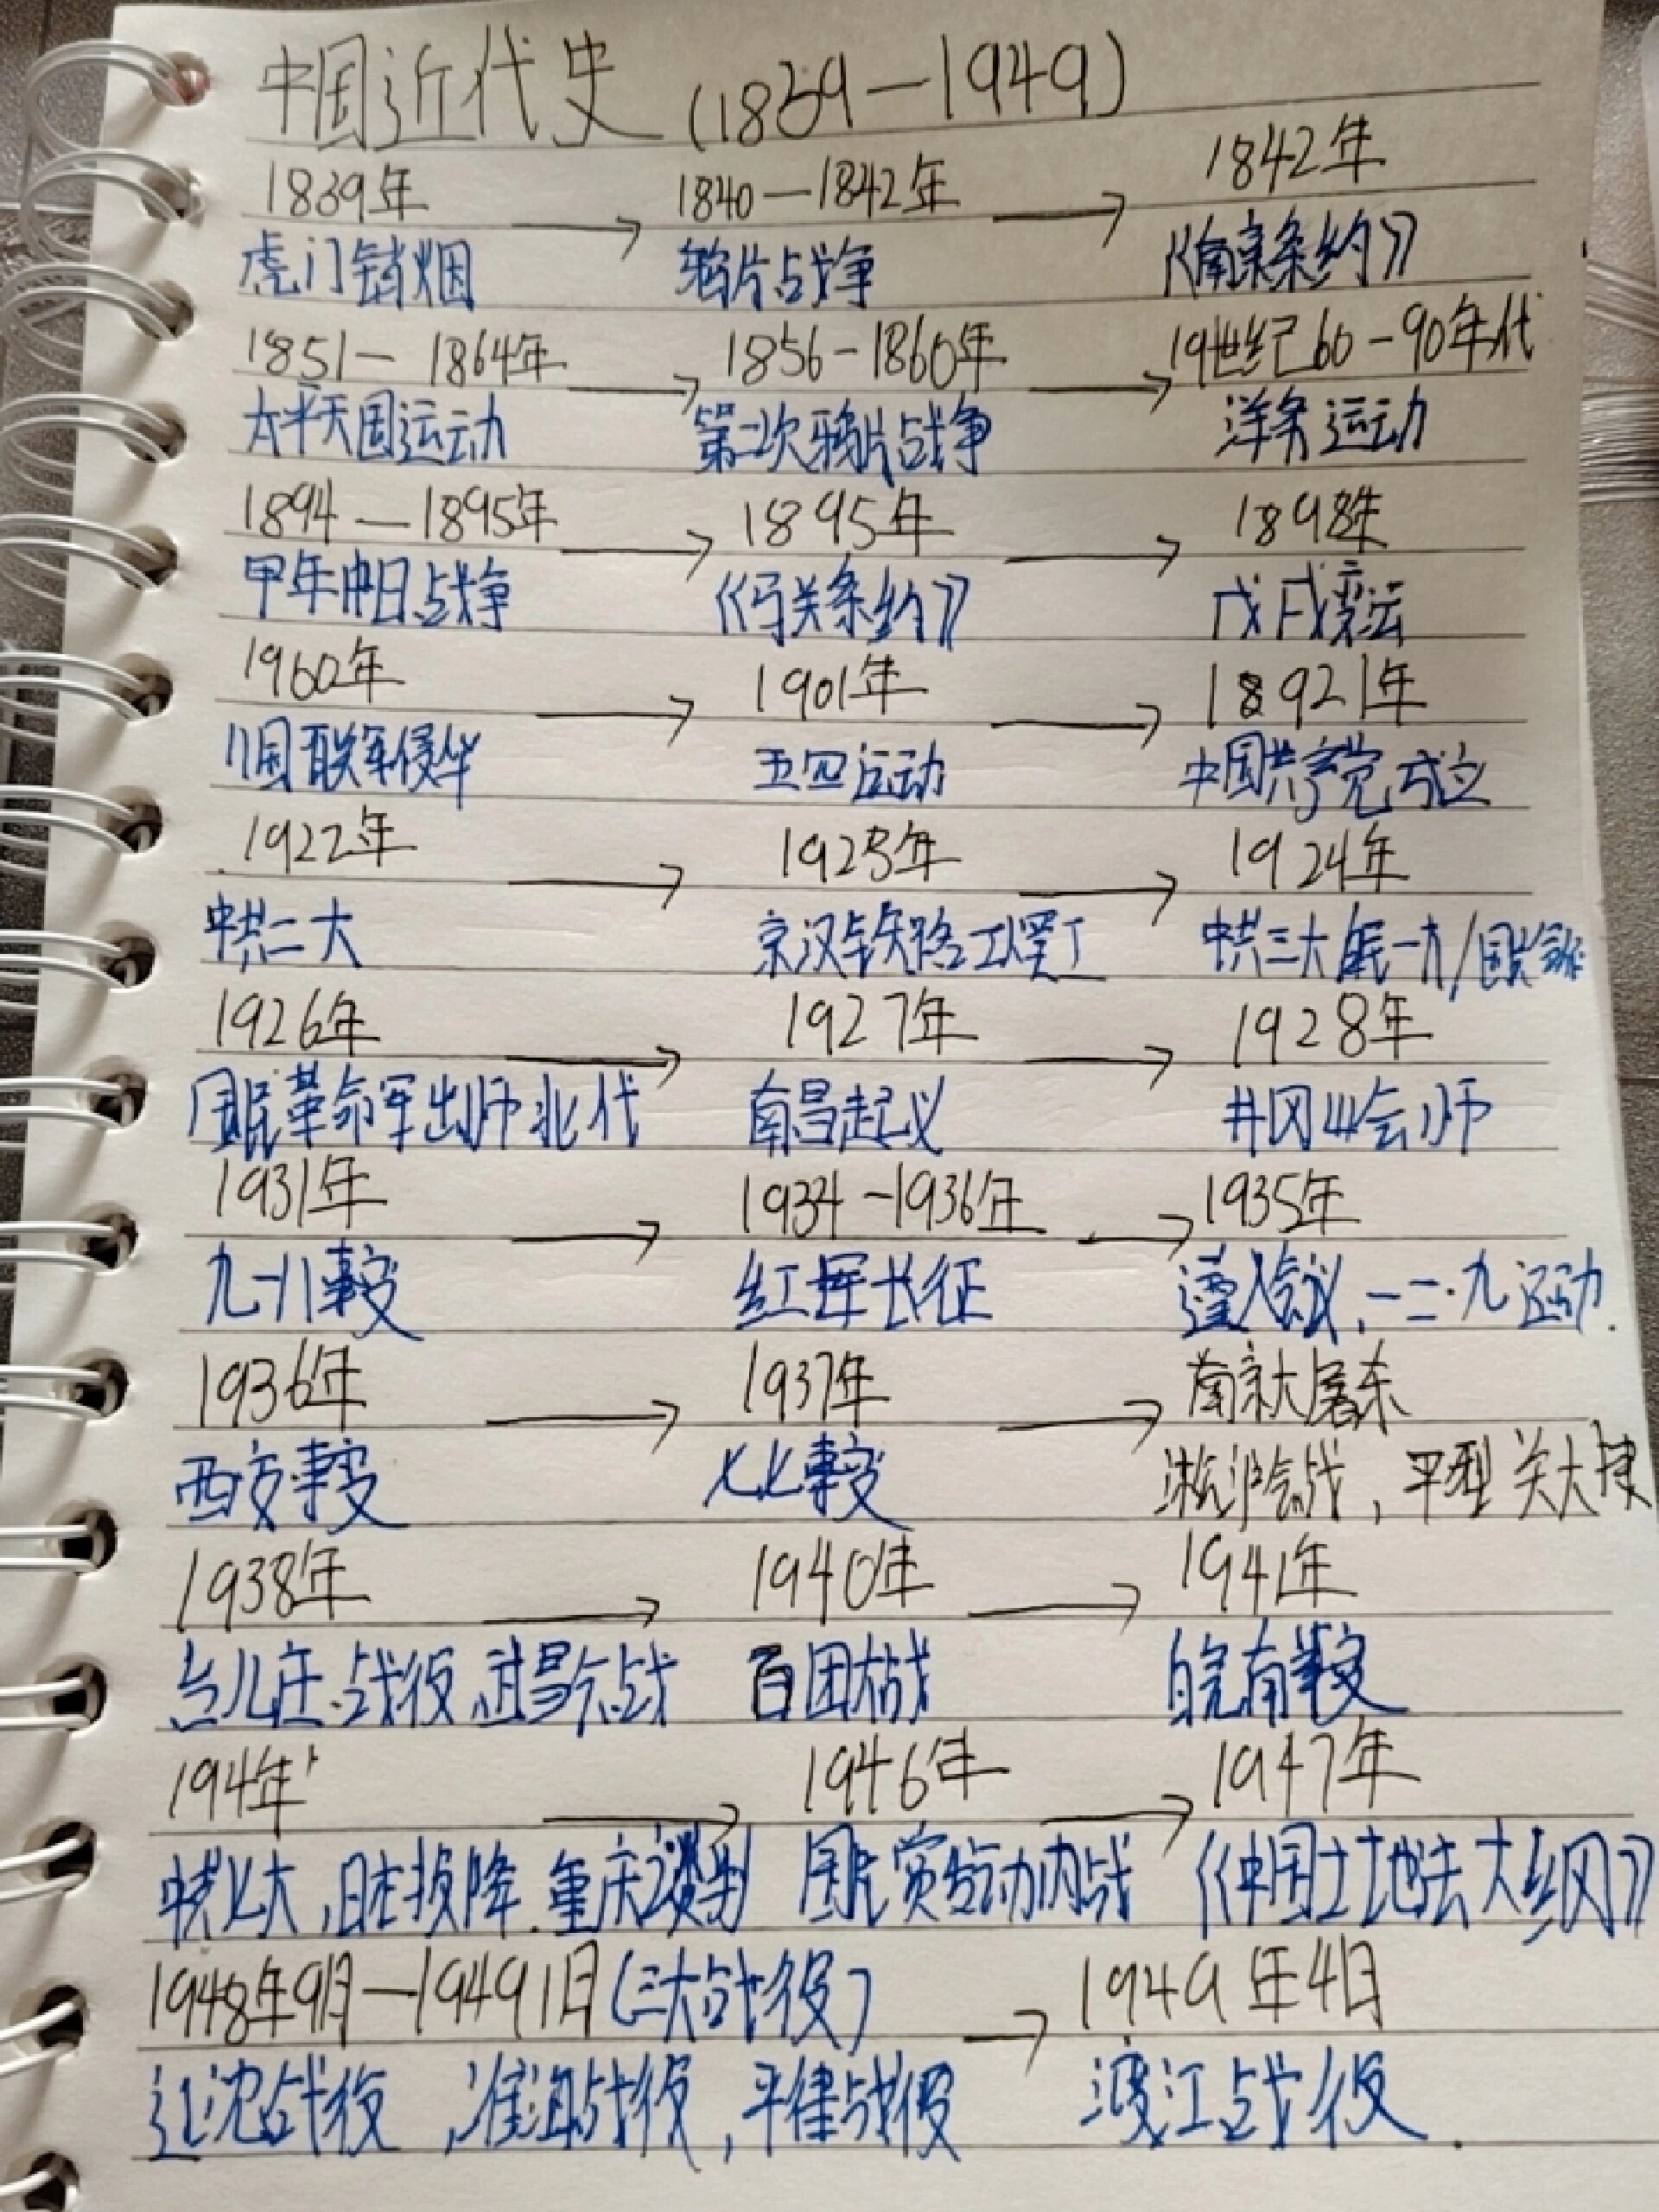 中国近代史 (1839—1949)
1839年 → 1840—1842年 → 1842年
虎门销烟 鸦片战争 《南京条约》
1851—1864年 → 1856-1860年 → 19世纪60-90年代
太平天国运动 第二次鸦片战争 洋务运动
1894—1895年 → 1895年 → 1898年
甲午中日战争 《马关条约》 戊戌变法
1960年 → 1901年 → 18921年
八国联军侵华 五四运动 中国共产党成立
1922年 → 1923年 → 1924年
中共二大 京汉铁路工人罢工 中共三大 /国共合作
1926年 → 1927年 → 1928年
国民革命军出师北伐 南昌起义 井冈山会师
1931年 → 1934-1936年 → 1935年
九一八事变 红军长征 遵义会议,一二·九运动.
1936年 → 1937年 → 南京大屠杀
西安事变 七七事变 淞沪会战,平型关大捷
1938年 → 1940年 → 1941年
台儿庄战役,武昌会战 百团大战 皖南事变
194年 → 1946年 → 1947年
中共七大,日本投降.重庆谈判 国民党发动内战 《中国土地法大纲》
1948年9月—19491日(三大战役) → 1949年4日
辽沈战役,淮海战役,平津战役 渡江战役.